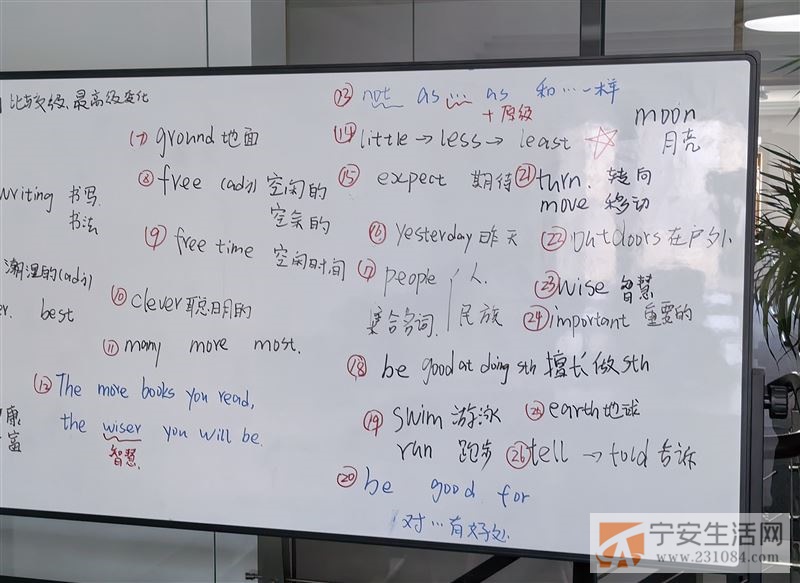 比较级.最高级变化
writing 书写.
书法
潮湿的(adj)
best
康
富
(7) ground 地面
⑧ free (adj) 空闲的
空余的
⑨ free time 空闲时间
⑩ clever 聪明的
⑪ many more most.
⑫ The more books you read,
the wiser you will be.
智慧.
⑬ not as ... as 和…一样
+原级
⑭ little → less → least ☆
⑮ expect 期待
⑯ yesterday 昨天
⑰ people 人.
集合名词 民族
⑱ be good at doing sth 擅长做sth
⑲ swim 游泳
run 跑步
⑳ be good for
对…有好处.
moon
月亮
㉑ turn. 转向
move 移动
㉒ outdoors 在户外
㉓ wise 智慧
㉔ important 重要的
㉕ earth 地球
㉖ tell → told 告诉
宁安生活网
www.231084.com